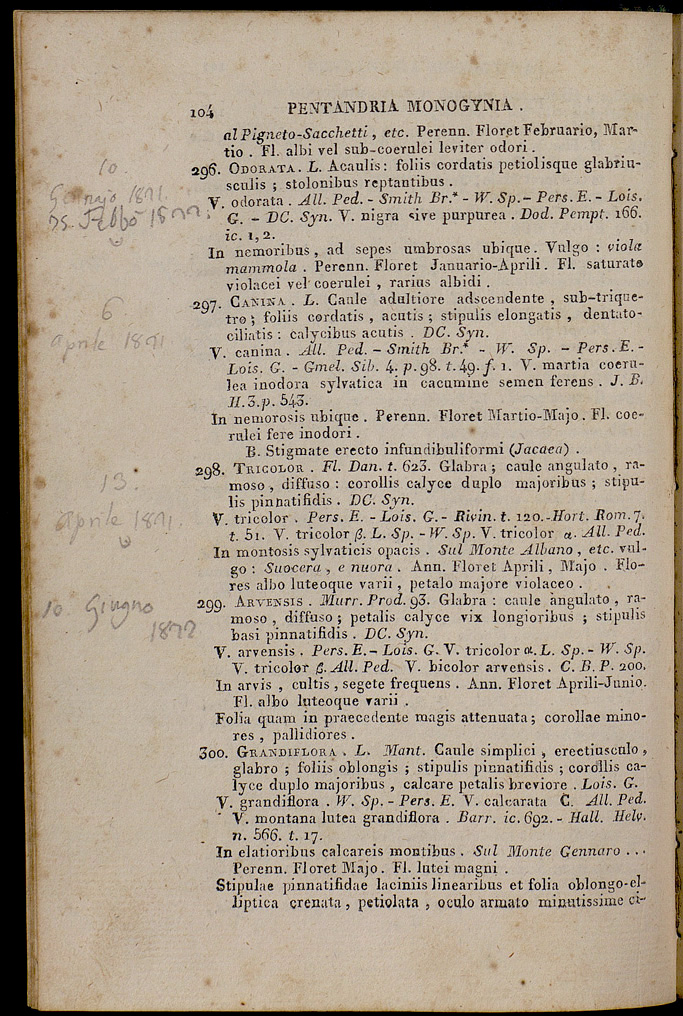 104 PENTANDRIA MONOGYNIA .
al Pigneto-Sacchetti , etc. Perenn. Floret Februario, Mar-
tio . Fl. albi vel sub-coerulei leviter odori .
296. ODORATA . L. Acaulis : foliis cordatis petiolisque glabriu-
sculis ; stolonibus reptantibus .
V. odorata . All. Ped. - Smith Br.* - W. Sp. - Pers. E. - Lois.
G. - DC. Syn. V. nigra sive purpurea . Dod. Pempt. 166.
ic. 1, 2.
In nemoribus , ad sepes umbrosas ubique . Vulgo : viola
mammola . Perenn. Floret Januario-Aprili . Fl. saturate
violacei vel coerulei , rarius albidi .
297. CANINA . L. Caule adultiore adscendente , sub-trique-
tro ; foliis cordatis , acutis ; stipulis elongatis , dentato-
ciliatis : calycibus acutis . DC. Syn.
V. canina . All. Ped. - Smith Br.* - W. Sp. - Pers. E. -
Lois. G. - Gmel. Sib. 4. p. 98. t. 49. f. 1. V. martia coeru-
lea inodora sylvatica in cacumine semen ferens . J. B.
H. 3. p. 543.
In nemorosis ubique . Perenn. Floret Martio-Majo . Fl. coe-
rulei fere inodori .
B. Stigmate erecto infundibuliformi (Jacaea) .
298. TRICOLOR . Fl. Dan. t. 623. Glabra ; caule angulato , ra-
moso , diffuso : corollis calyce duplo majoribus ; stipu-
lis pinnatifidis . DC. Syn.
V. tricolor . Pers. E. - Lois. G. - Rivin. t. 120. - Hort. Rom. 7.
t. 51. V. tricolor β. L. Sp. - W. Sp. V. tricolor α. All. Ped.
In montosis sylvaticis opacis . Sul Monte Albano , etc. vul-
go : Suocera , e nuora . Ann. Floret Aprili , Majo . Flo-
res albo luteoque varii , petalo majore violaceo .
299. ARVENSIS . Murr. Prod. 93. Glabra : caule angulato , ra-
moso , diffuso ; petalis calyce vix longioribus ; stipulis
basi pinnatifidis . DC. Syn.
V. arvensis . Pers. E. - Lois. G. V. tricolor α. L. Sp. - W. Sp.
V. tricolor β. All. Ped. V. bicolor arvensis . C. B. P. 200.
In arvis , cultis , segete frequens . Ann. Floret Aprili-Junio.
Fl. albo luteoque varii .
Folia quam in praecedente magis attenuata ; corollae mino-
res , pallidiores .
300. GRANDIFLORA . L. Mant. Caule simplici , erectiusculo ,
glabro ; foliis oblongis ; stipulis pinnatifidis ; corollis ca-
lyce duplo majoribus , calcare petalis breviore . Lois. G.
V. grandiflora . W. Sp. - Pers. E. V. calcarata C. All. Ped.
V. montana lutea grandiflora . Barr. ic. 692. - Hall. Helv.
n. 566. t. 17.
In elatioribus calcareis montibus . Sul Monte Gennaro . . .
Perenn. Floret Majo . Fl. lutei magni .
Stipulae pinnatifidae laciniis linearibus et folia oblongo-el-
liptica crenata , petiolata , oculo armato minutissime ci-
10
Gennajo 1871
Febbo
6
aprile 1871
13
aprile 1871.
10. Giugno
1872